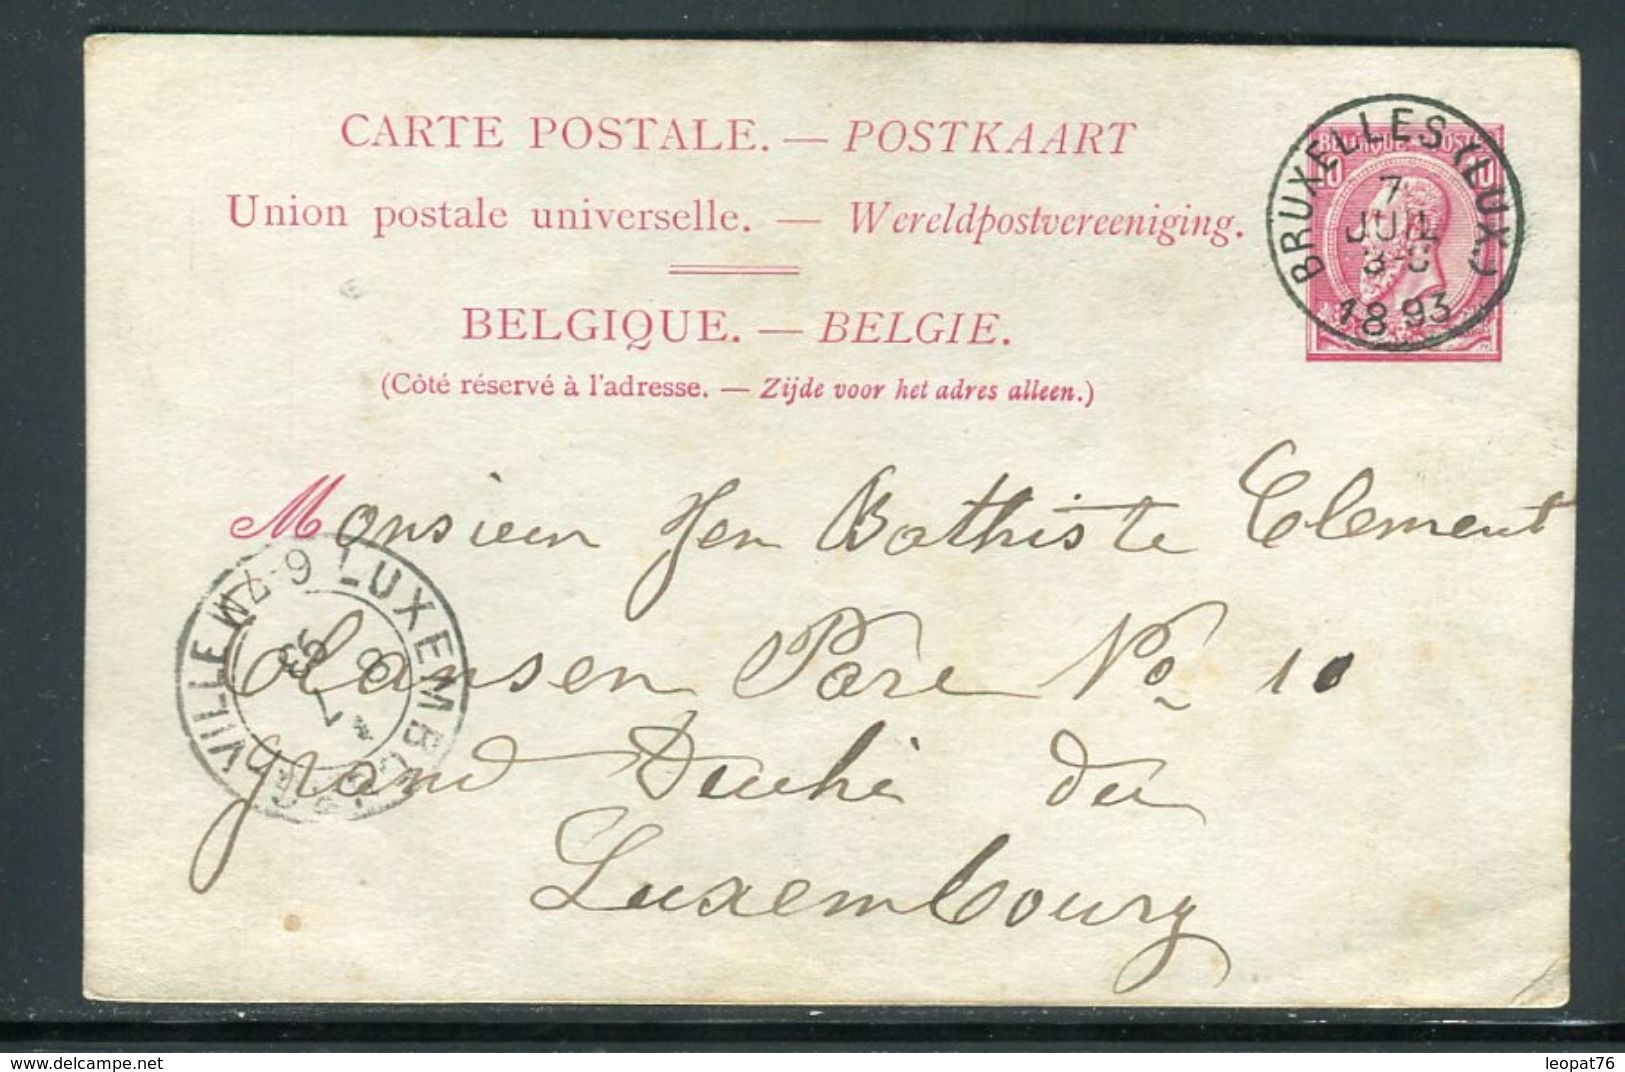 CARTE POSTALE. — POSTKAART
Union postale universelle. — Wereldpostvereeniging.
BELGIQUE. — BELGIE.
(Côté réservé à l'adresse. — Zijde voor het adres alleen.)
BELGIQUE POSTES
10 10
BRUXELLES (LUX.)
7
JUIL
1893
Monsieur Jen Bathiste Clement
Clansen Pare No 10
grand Duché du
Luxembourg
LUXEMBOURG-VILLE
6-7M
8
7
93
delcampe.net
leopat76